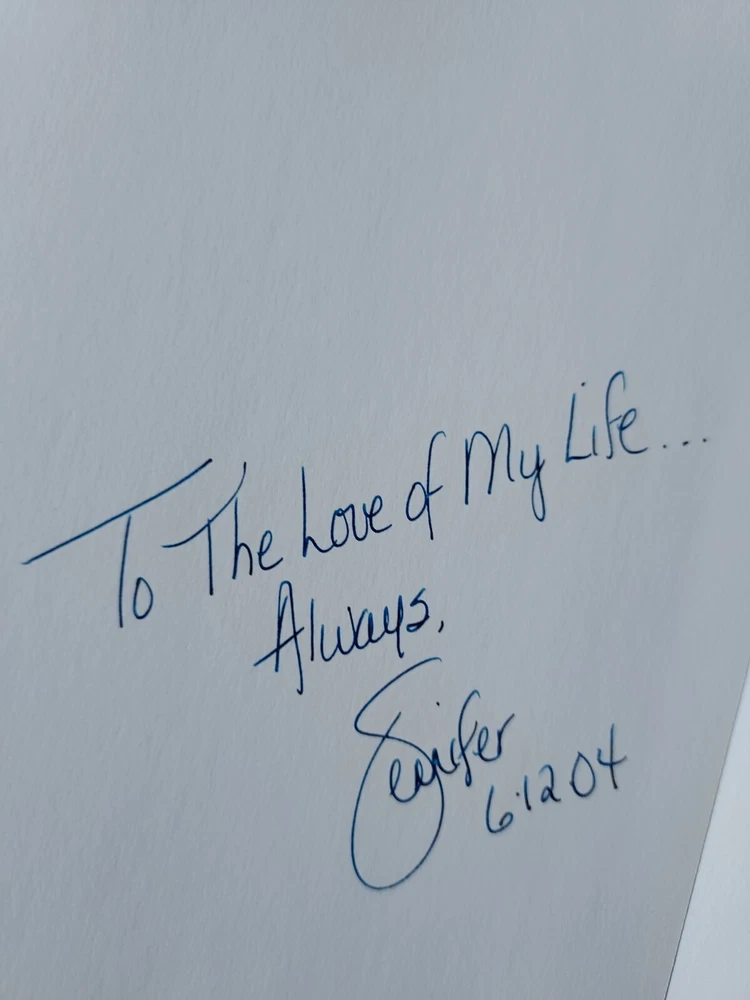 To The Love of My Life...
Always,
Jennifer
6.12.04